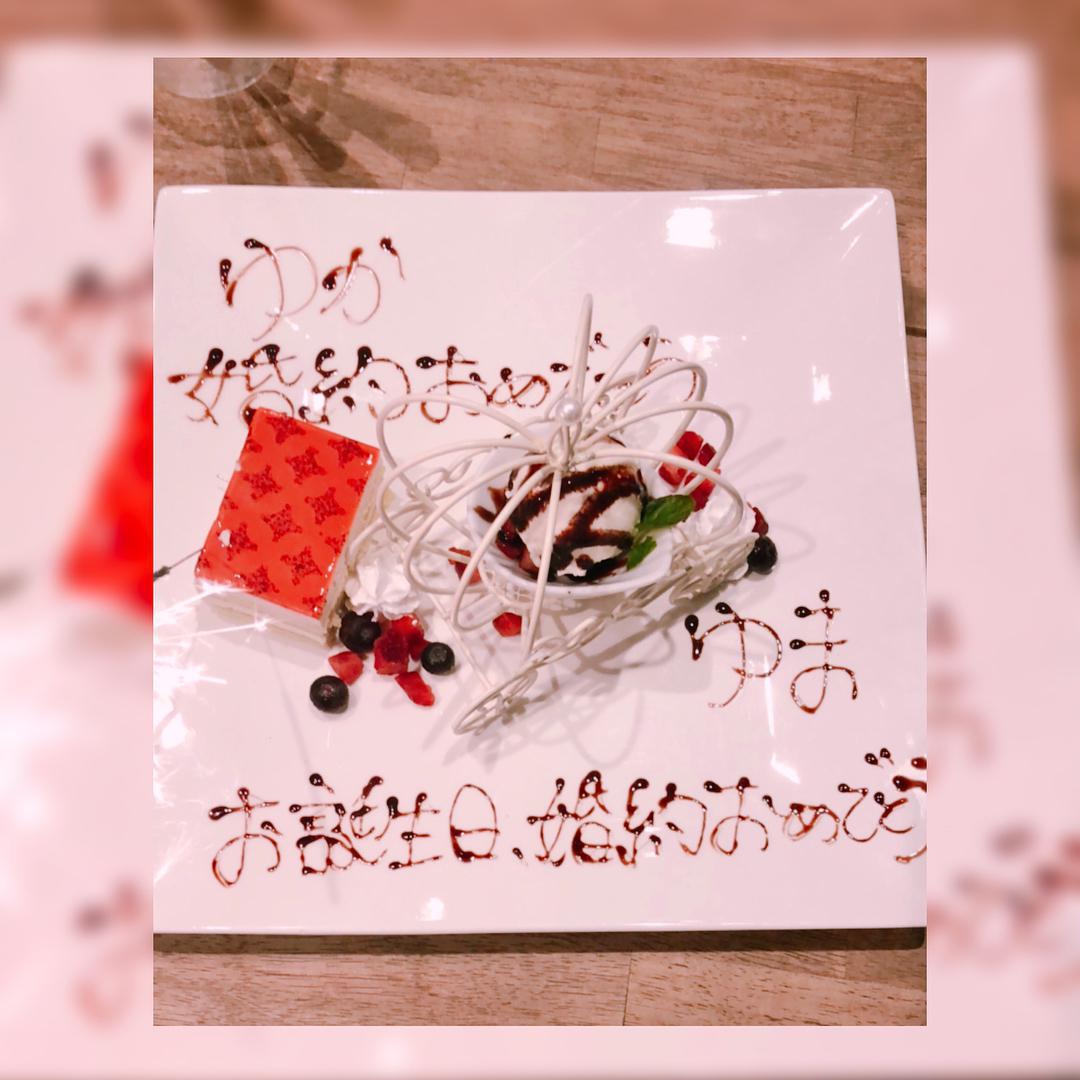 ゆか
婚約おめ
ゆま
お誕生日、婚約おめでとう